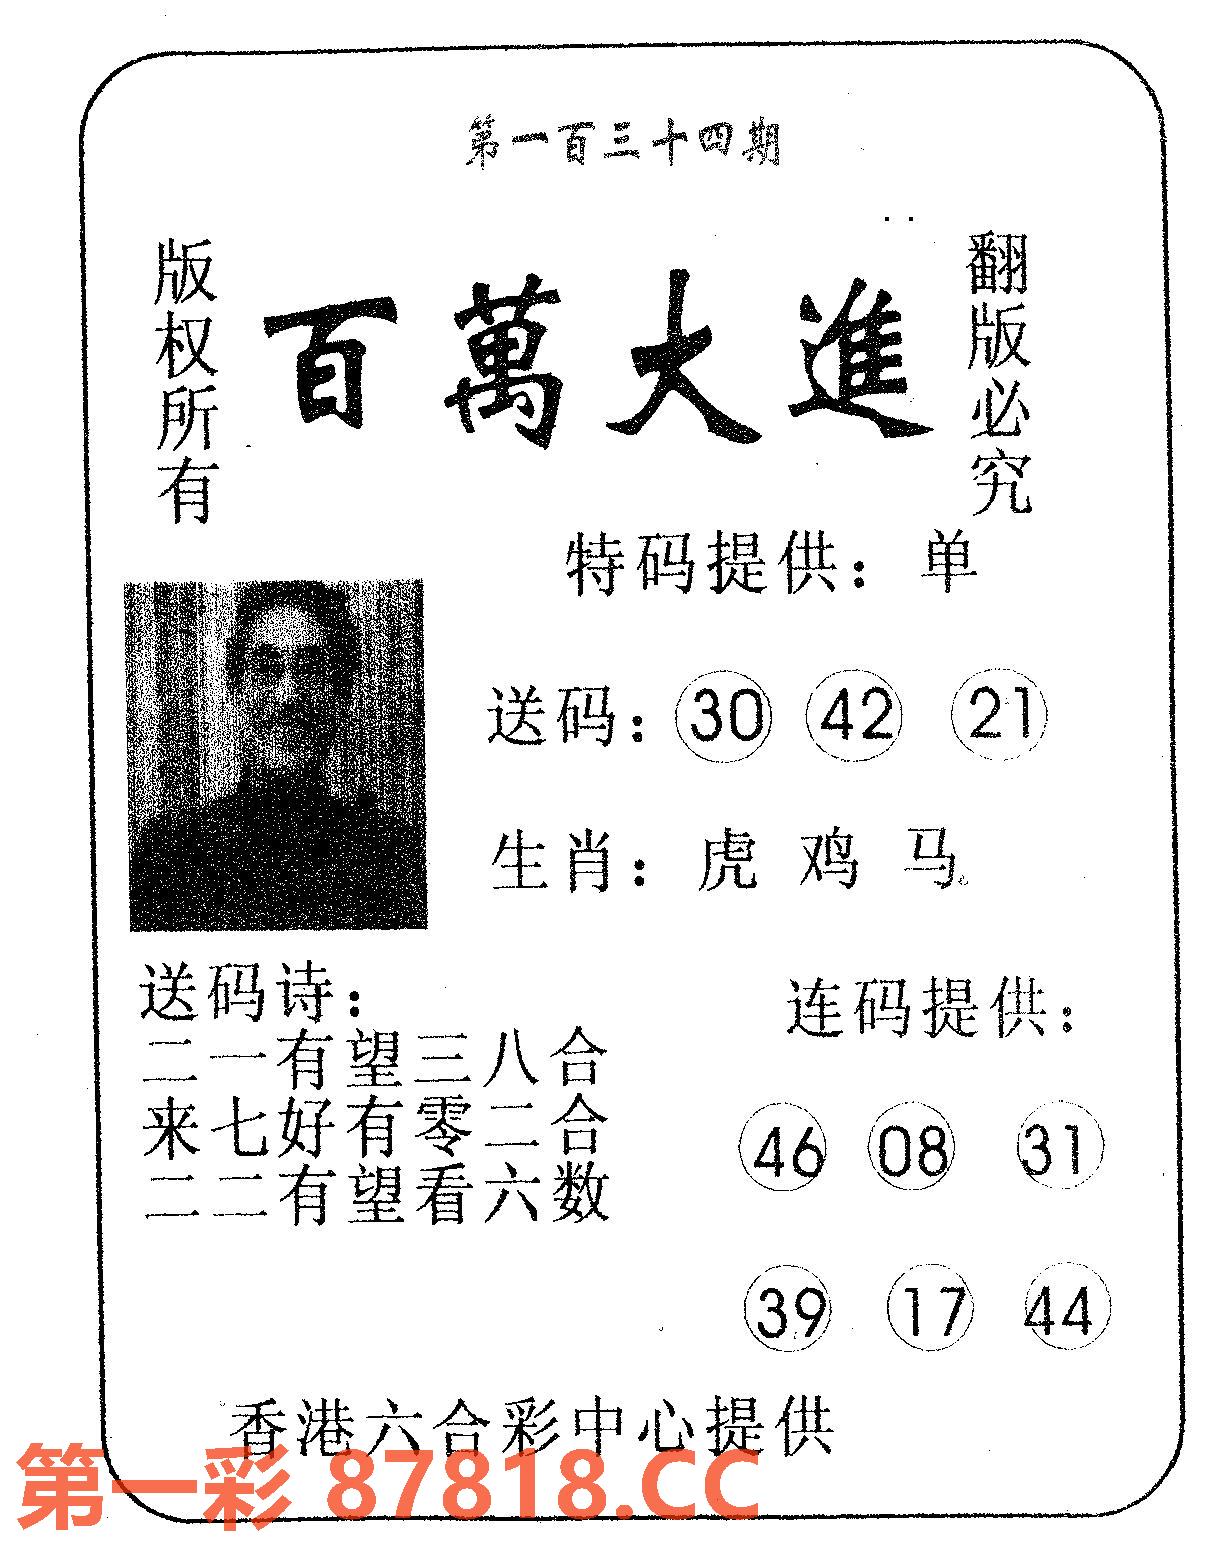 第一百三十四期
版权所有
百萬大進
翻版必究
特码提供：单
送码：30 42 21
生肖：虎 鸡 马
送码诗：
二一有望三八合
来七好有零二合
二二有望看六数
连码提供：
46 08 31
39 17 44
香港六合彩中心提供
第一彩 87818.CC